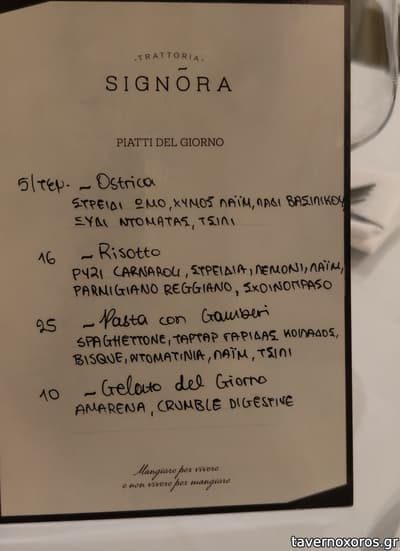 ·TRATTORIA·
SIGNŌRA
PIATTI DEL GIORNO
5/τεμ. ~ Ostrica
ΣΤΡΕΙΔΙ ΩΜΟ, ΧΥΜΟΣ ΛΑΪΜ, ΛΑΔΙ ΒΑΣΙΛΙΚΟΥ
ΞΥΔΙ ΝΤΟΜΑΤΑΣ, ΤΣΙΛΙ
16 ~ Risotto
ΡΥΖΙ CARNAROLI, ΣΤΡΕΙΔΙΑ, ΛΕΜΟΝΙ, ΛΑΪΜ,
PARMIGIANO REGGIANO, ΣΧΟΙΝΟΠΡΑΣΟ
25 ~ Pasta con Gamberi
SPAGHETTONE, ΤΑΡΤΑΡ ΓΑΡΙΔΑΣ ΚΟΙΛΑΔΟΣ,
BISQUE, ΝΤΟΜΑΤΙΝΙΑ, ΛΑΪΜ, ΤΣΙΛΙ
10 ~ Gelato del Giorno
AMARENA, CRUMBLE DIGESTIVE
Mangiare per vivere
e non vivere per mangiare
tavernoxoros.gr